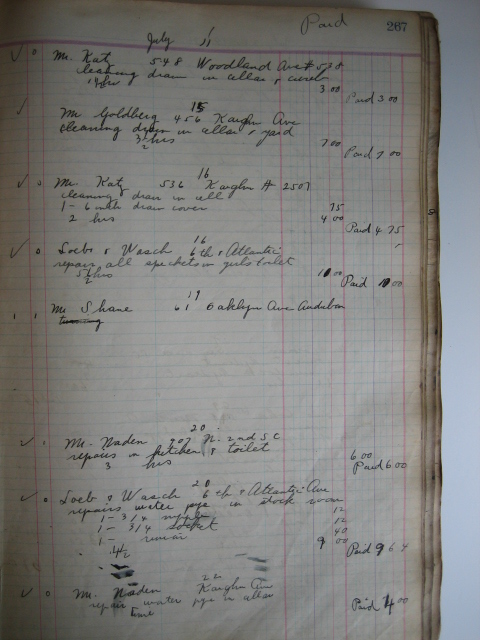 Paid 267
July 11
Mr. Katz 548 Woodland Ave # 538
cleaning drain in cellar &
1½ hrs 3 00
Paid 3 00
15
Mr Goldberg 456 Kaighn Ave
cleaning drain in cellar & yard
3½ hrs 7 00
Paid 7 00
16
Mr. Katz 536 Kaighn # 2507
cleaning drain in cell
1 - 6 inch drain cover 75
2 hrs 4 00
Paid 4 75
16
Loeb & Wasch 6th & Atlantic
repairs all in girls toilet
5½ hrs 10 00
Paid 10 00
19
Mr Shane 61 Oaklyn Ave Audubon
20
Mr. Naden 407 N. 2nd St C
repairs in kitchen & toilet
3 hrs 6 00
Paid 6 00
20
Loeb & Wasch 6th & Atlantic Ave
repairs water pipe in stock room
1 - 3/4 nipple 12
1 - 3/4 socket 12
1 - 40
4½ 9 00
Paid 9 64
22
Mr. Naden Kaighn Ave
repair water pipe in cellar
time
Paid 4 00